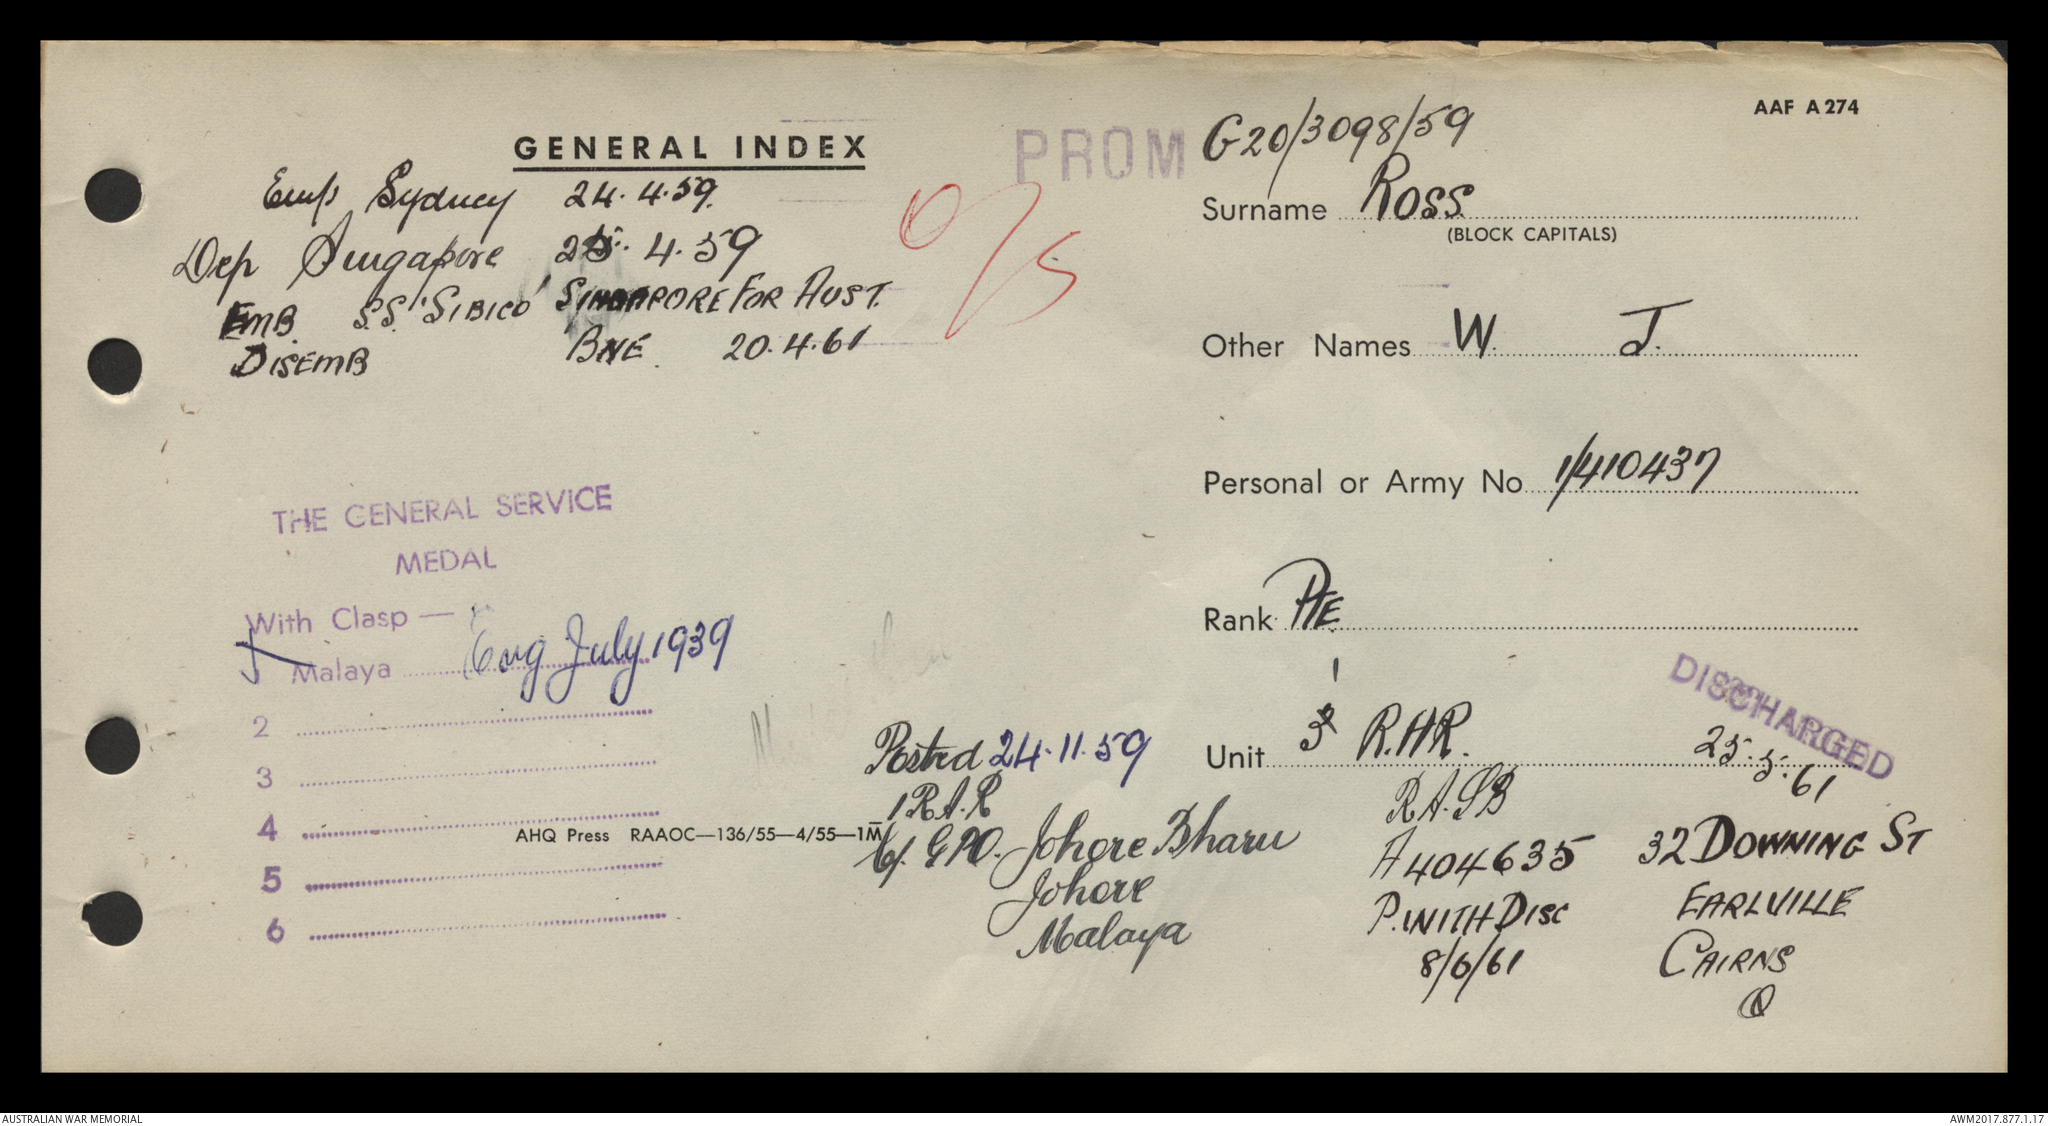 AAF A 274
GENERAL INDEX
PROM
G20/3098/59
Emb Sydney 24. 4. 59.
Dep Singapore 25. 4. 59
EMB. S.S. 'SIBICO' SINGAPORE FOR AUST.
DISEMB BNE. 20. 4. 61
O/S
Surname ROSS
(BLOCK CAPITALS)
Other Names W. J.
Personal or Army No 1/410437
Rank PTE
1
Unit R.A.R.
DISCHARGED
25. 5. 61
THE GENERAL SERVICE
MEDAL
With Clasp —
Malaya Eng July 1939
2
3
4
5
6
AHQ Press RAAOC—136/55—4/55—1M
Posted 24.11.59
1 R.A.R
G.P.O. Johore Bharu
Johore
Malaya
R.A.SB
A404635
P.WITH DISC
8/6/61
32 DOWNING ST
EARLVILLE
CAIRNS
Q
AUSTRALIAN WAR MEMORIAL
AWM2017.877.1.17